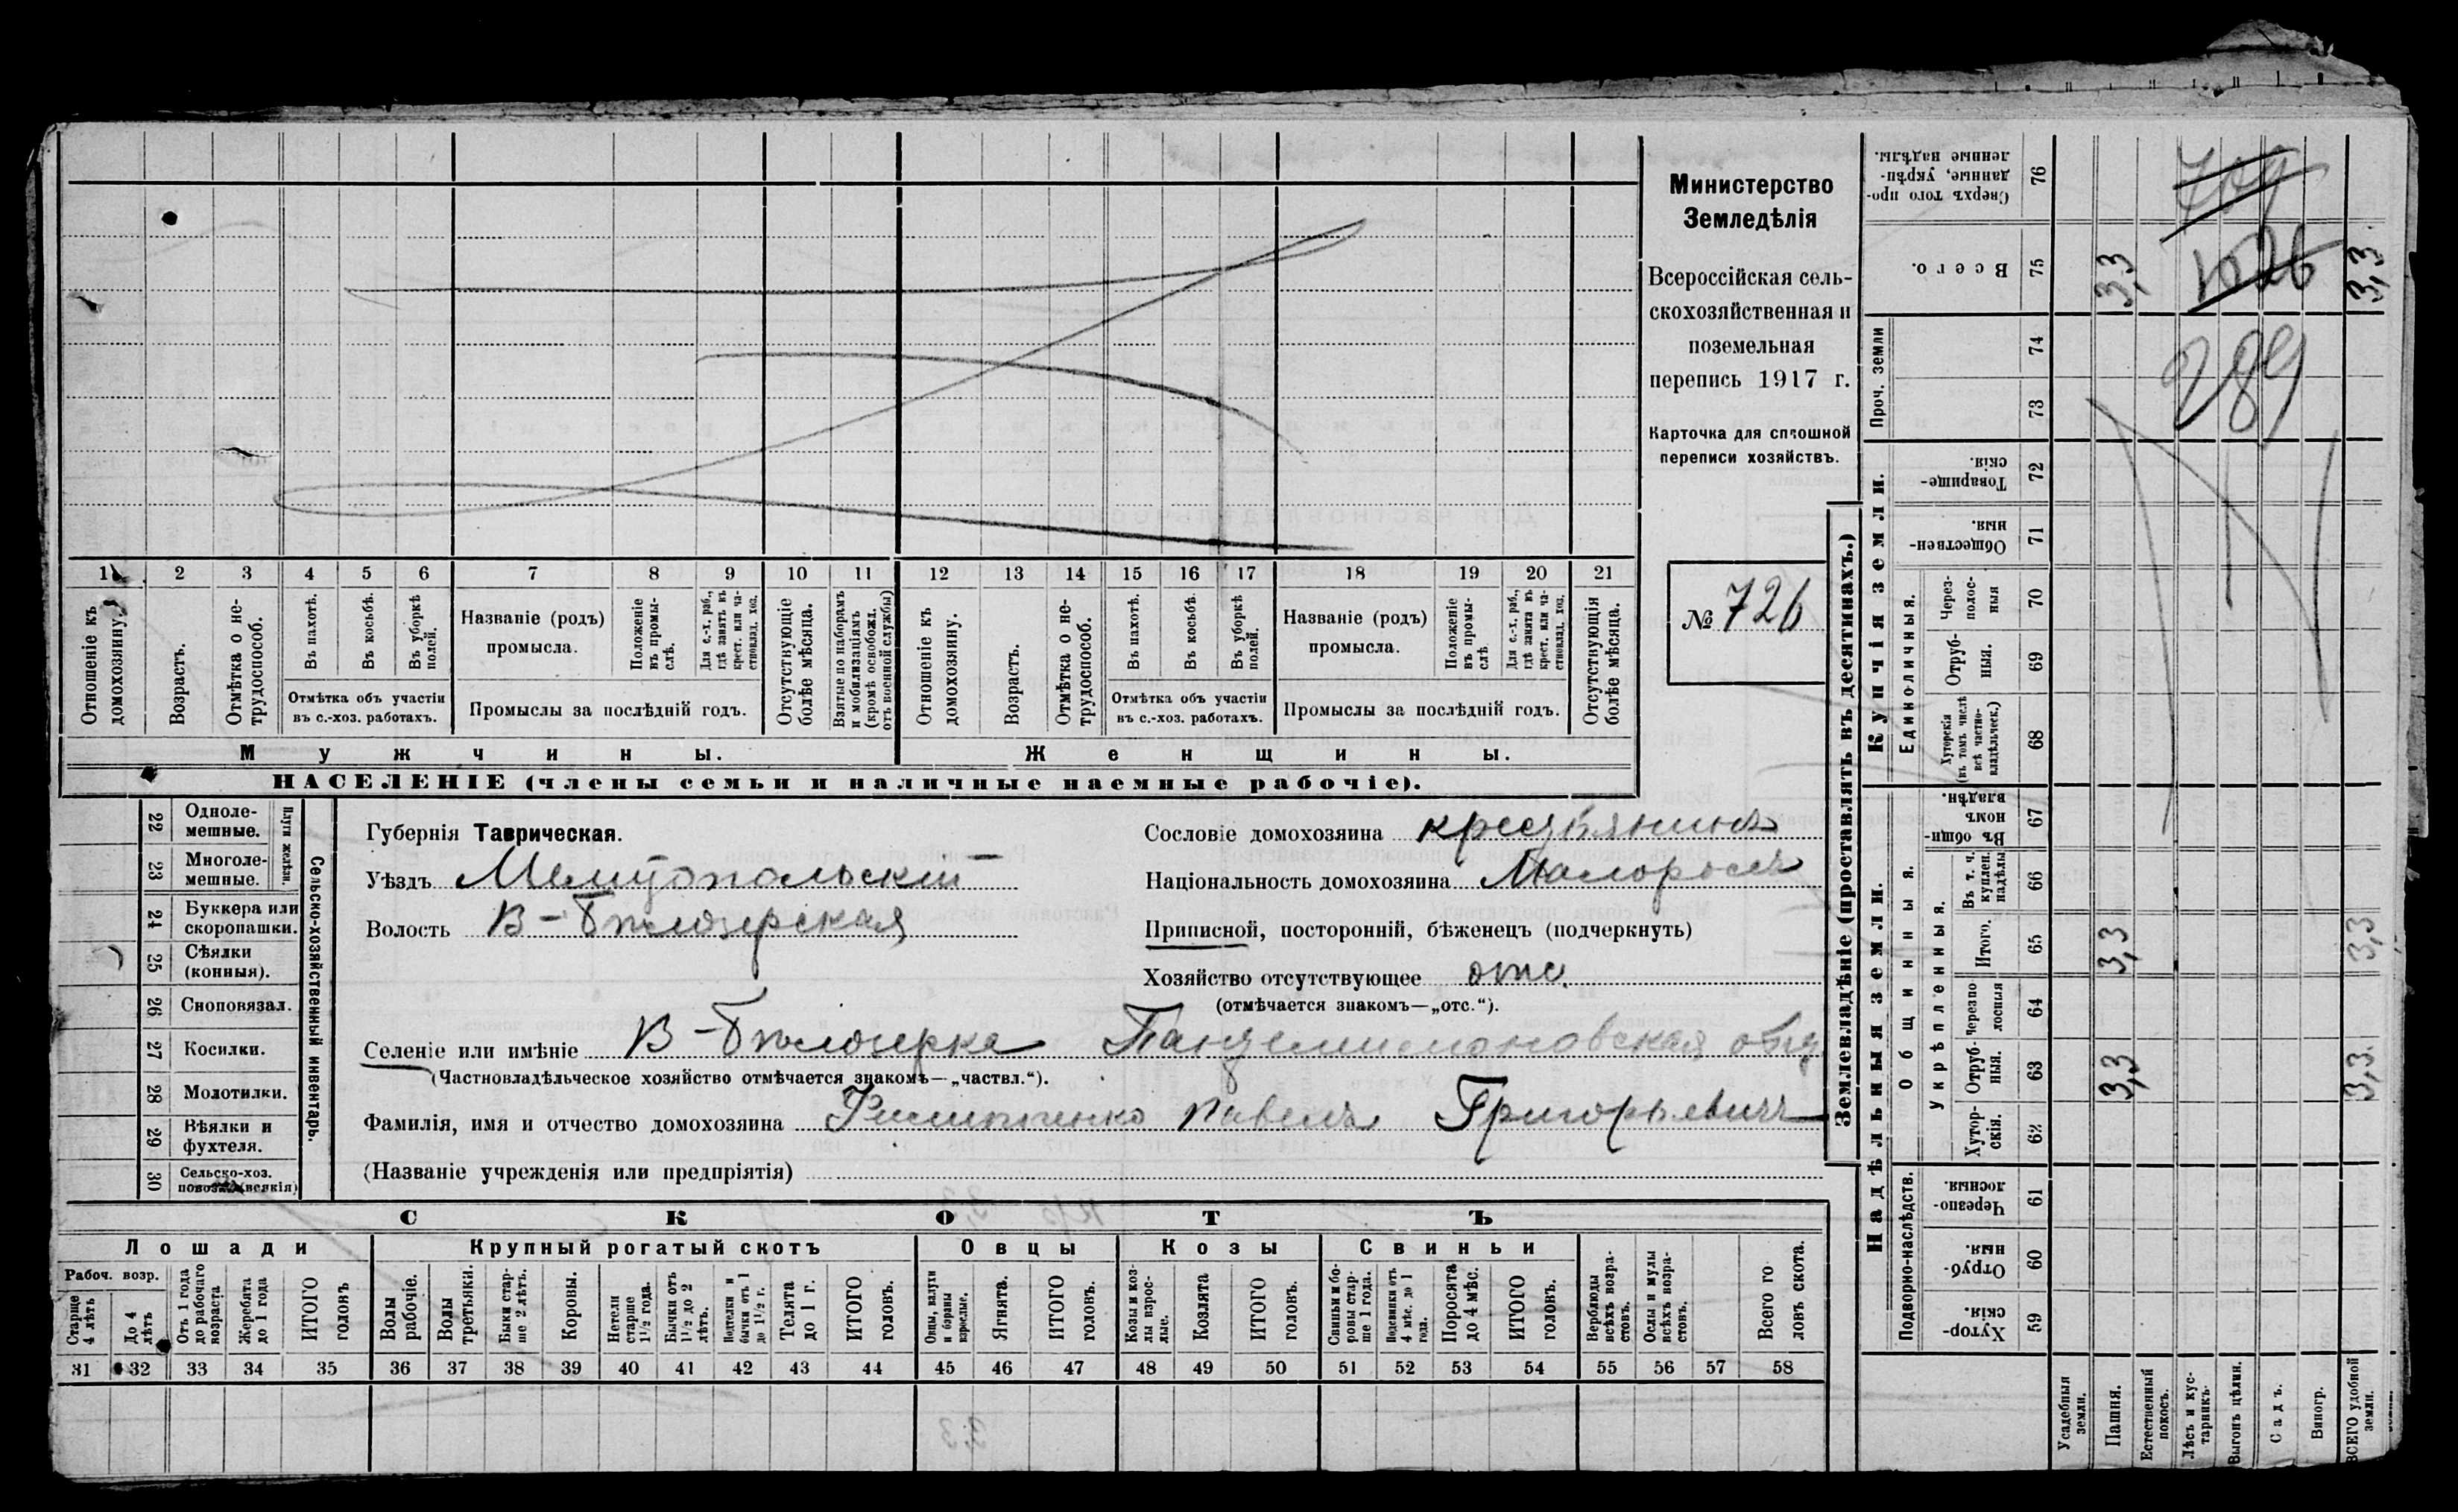 Министерство
Земледѣлія
Всероссійская сель-
скохозяйственная и
поземельная
перепись 1917 г.
Карточка для сплошной
переписи хозяйствъ.
№ 726
1 2 3 4 5 6 7 8 9 10 11 12 13 14 15 16 17 18 19 20 21
Отношеніе къ домохозяину.
Возрастъ.
Отмѣтка о не-трудоспособ.
Въ пахотѣ.
Въ косьбѣ.
Въ уборкѣ полей.
Отмѣтка объ участіи
въ с.-хоз. работахъ.
Названіе (родъ)
промысла.
Положеніе въ промы-слѣ.
Для с.-х. раб., гдѣ занятъ въ крест. или ча-стновлад. хоз.
Промыслы за послѣдній годъ.
Отсутствующіе болѣе мѣсяца.
Взятые по наборамъ и мобилизаціямъ (кромѣ освобожд. отъ военной службы)
Отношеніе къ домохозяину.
Возрастъ.
Отмѣтка о не-трудоспособ.
Въ пахотѣ.
Въ косьбѣ.
Въ уборкѣ полей.
Отмѣтка объ участіи
въ с.-хоз. работахъ.
Названіе (родъ)
промысла.
Положеніе въ промы-слѣ
Для с.-х. раб., гдѣ занята въ крест. или ча-стновлад. хоз.
Промыслы за послѣдній годъ.
Отсутствующія болѣе мѣсяца.
Мужчины.
Женщины.
НАСЕЛЕНІЕ (члены семьи и наличные наемные рабочіе).
Сельско-хозяйственный инвентарь.
Плуги желѣзн.
22 Одноле-мешные.
23 Многоле-мешные.
24 Буккера или скоропашки.
25 Сѣялки (конныя).
26 Сноповязал.
27 Косилки.
28 Молотилки.
29 Вѣялки и фухтеля.
30 Сельско-хоз. повозки (всякія)
Губернія Таврическая.
Уѣздъ Мелитопольскій
Волость В-Бѣлозерская
Сословіе домохозяина крестьянинъ
Національность домохозяина Малороссъ
Приписной, посторонній, бѣженецъ (подчеркнуть)
Хозяйство отсутствующее отс.
(отмѣчается знакомъ—„отс.“).
Селеніе или имѣніе В-Бѣлозерка Пантелимоновская общ
(Частновладѣльческое хозяйство отмѣчается знакомъ—„частвл.“).
Фамилія, имя и отчество домохозяина Филиппенко Павелъ Григорьевичъ
(Названіе учрежденія или предпріятія)
СКОТЪ
Лошади
Крупный рогатый скотъ
Овцы
Козы
Свиньи
Рабоч. возр.
Старше 4 лѣтъ
До 4 лѣтъ
Отъ 1 года до рабочаго возраста
Жеребята до 1 года
ИТОГО головъ
Волы рабочіе.
Волы третьяки.
Быки стар-ше 2 лѣтъ.
Коровы.
Нетели старше 1½ года.
Бычки отъ 1½ до 2 лѣтъ.
Подтелки и бычки отъ 1 до 1½ г.
Телята до 1 г.
ИТОГО головъ.
Овцы, валухи и бараны взрослые.
Ягнята.
ИТОГО головъ.
Козы и коз-лы взрос-лые.
Козлята
ИТОГО головъ.
Свиньи и бо-ровы стар-ше 1 года.
Подсвинки отъ 4 мѣс. до 1 года.
Поросята до 4 мѣс.
ИТОГО головъ.
Верблюды всѣхъ возра-стовъ.
Ослы и мулы всѣхъ возра-стовъ.
Всего го-ловъ скота.
31 32 33 34 35 36 37 38 39 40 41 42 43 44 45 46 47 48 49 50 51 52 53 54 55 56 57 58
Землевладѣніе (проставлять въ десятинахъ.)
Надѣльныя земли.
Подворно-наслѣдств.
59 Хутор-скія.
60 Отруб-ныя.
61 Черезпо-лосныя.
Общинныя.
Укрѣпленныя.
62 Хутор-скія.
63 Отруб-ныя. 3,3 3,3
64 Черезпо-лосныя
65 Итого. 3,3 3,3
66 Въ т. ч. куплен. надѣлы
67 Въ общин-номъ владѣн.
Купчія земли.
Единоличныя.
68 Хуторскія (въ томъ числѣ всѣ частно-владѣльческ.)
69 Отруб-ныя.
70 Через-полос-ныя
71 Обществен-ныя.
72 Товарище-скія.
Проч. земли
73
74
75 Всего. 3,3 3,3
76 Сверхъ того про-данные, укрѣп-ленные надѣлы.
709
1026
289
Усадебныя земли.
Пашня.
Естественный покосъ.
Лѣсъ и кус-тарникъ.
Выгонъ цѣлин.
Садъ.
Виногр.
ВСЕГО удобной земли.